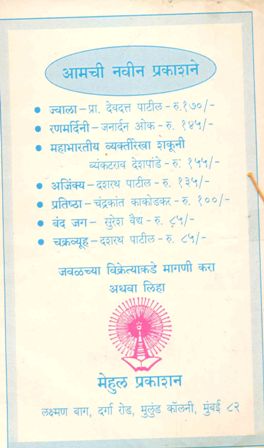 आमची नवीन प्रकाशने
● ज्वाला – प्रा. देवदत्त पाटील – रु. १७०/-
● रणमर्दिनी – जनार्दन ओक – रु. १४५/-
● महाभारतीय व्यक्तीरेखा शकूनी
व्यंकटराव देशपांडे – रु. १५५/-
● अजिंक्य – दशरथ पाटील – रु. १३५/-
● प्रतिष्ठा – चंद्रकांत काकोडकर – रु. १००/-
● बंद जग – सुरेश वैद्य – रु. ८५/-
● चक्रव्यूह – दशरथ पाटील – रु. ८५/-
जवळच्या विक्रेत्याकडे मागणी करा
अथवा लिहा
मेहुल प्रकाशन
लक्ष्मण बाग, दर्गा रोड, मुलुंड कॉलनी, मुंबई ८२